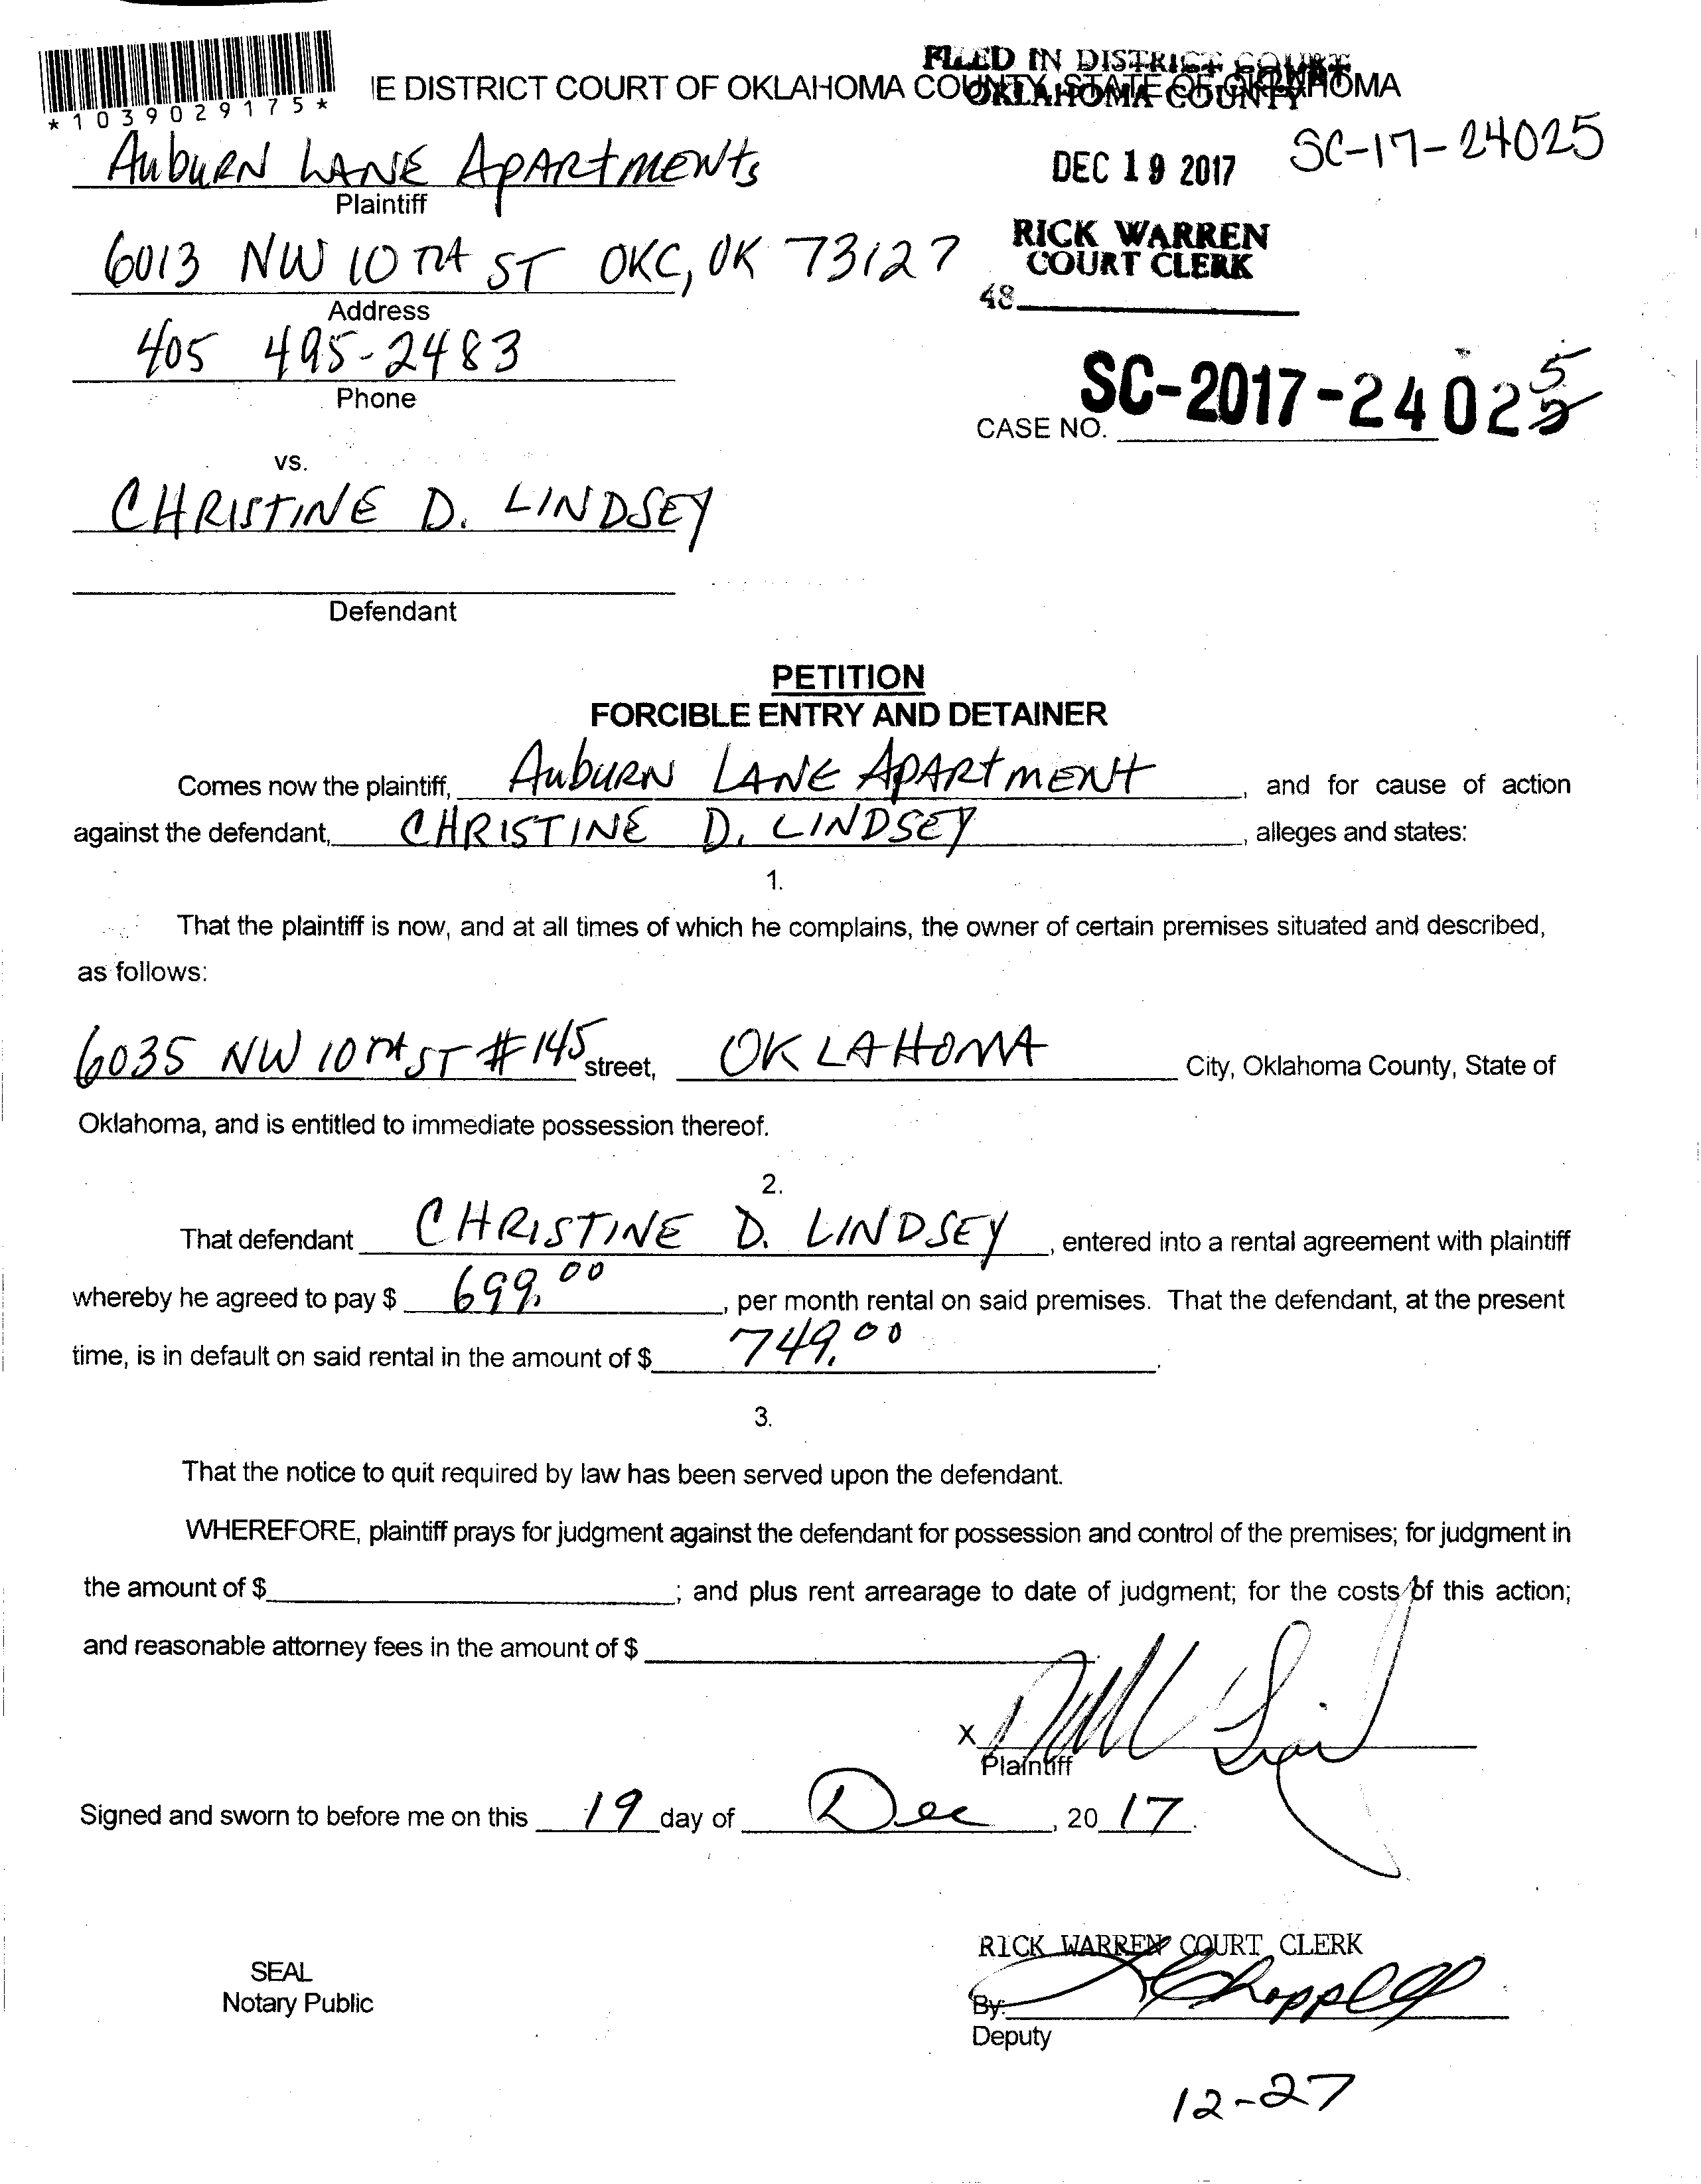 FILED IN DISTRICT COURT
OKLAHOMA COUNTY
IE DISTRICT COURT OF OKLAHOMA COUNTY, STATE OF OKLAHOMA
*1039029175*
AubuRN LANE APARtMENts
Plaintiff
DEC 19 2017
SC-17-24025
6013 NW 10TH ST OKC, OK 73127
Address
RICK WARREN
COURT CLERK
48
405 495-2483
Phone
CASE NO. SC-2017-24025
vs.
CHRISTINE D. LINDSEY
Defendant
PETITION
FORCIBLE ENTRY AND DETAINER
Comes now the plaintiff, AubuRN LANE APARtMENt, and for cause of action
against the defendant, CHRISTINE D. LINDSEY, alleges and states:
1.
That the plaintiff is now, and at all times of which he complains, the owner of certain premises situated and described,
as follows:
6035 NW 10TH ST #145 street, OKLAHOMA City, Oklahoma County, State of
Oklahoma, and is entitled to immediate possession thereof.
2.
That defendant CHRISTINE D. LINDSEY, entered into a rental agreement with plaintiff
whereby he agreed to pay $ 699.00, per month rental on said premises. That the defendant, at the present
time, is in default on said rental in the amount of $ 749.00.
3.
That the notice to quit required by law has been served upon the defendant.
WHEREFORE, plaintiff prays for judgment against the defendant for possession and control of the premises; for judgment in
the amount of $ ; and plus rent arrearage to date of judgment; for the costs of this action;
and reasonable attorney fees in the amount of $ .
X
Plaintiff
Signed and sworn to before me on this 19 day of Dec, 20 17.
RICK WARREN COURT CLERK
SEAL
Notary Public
By:
Deputy
12-27